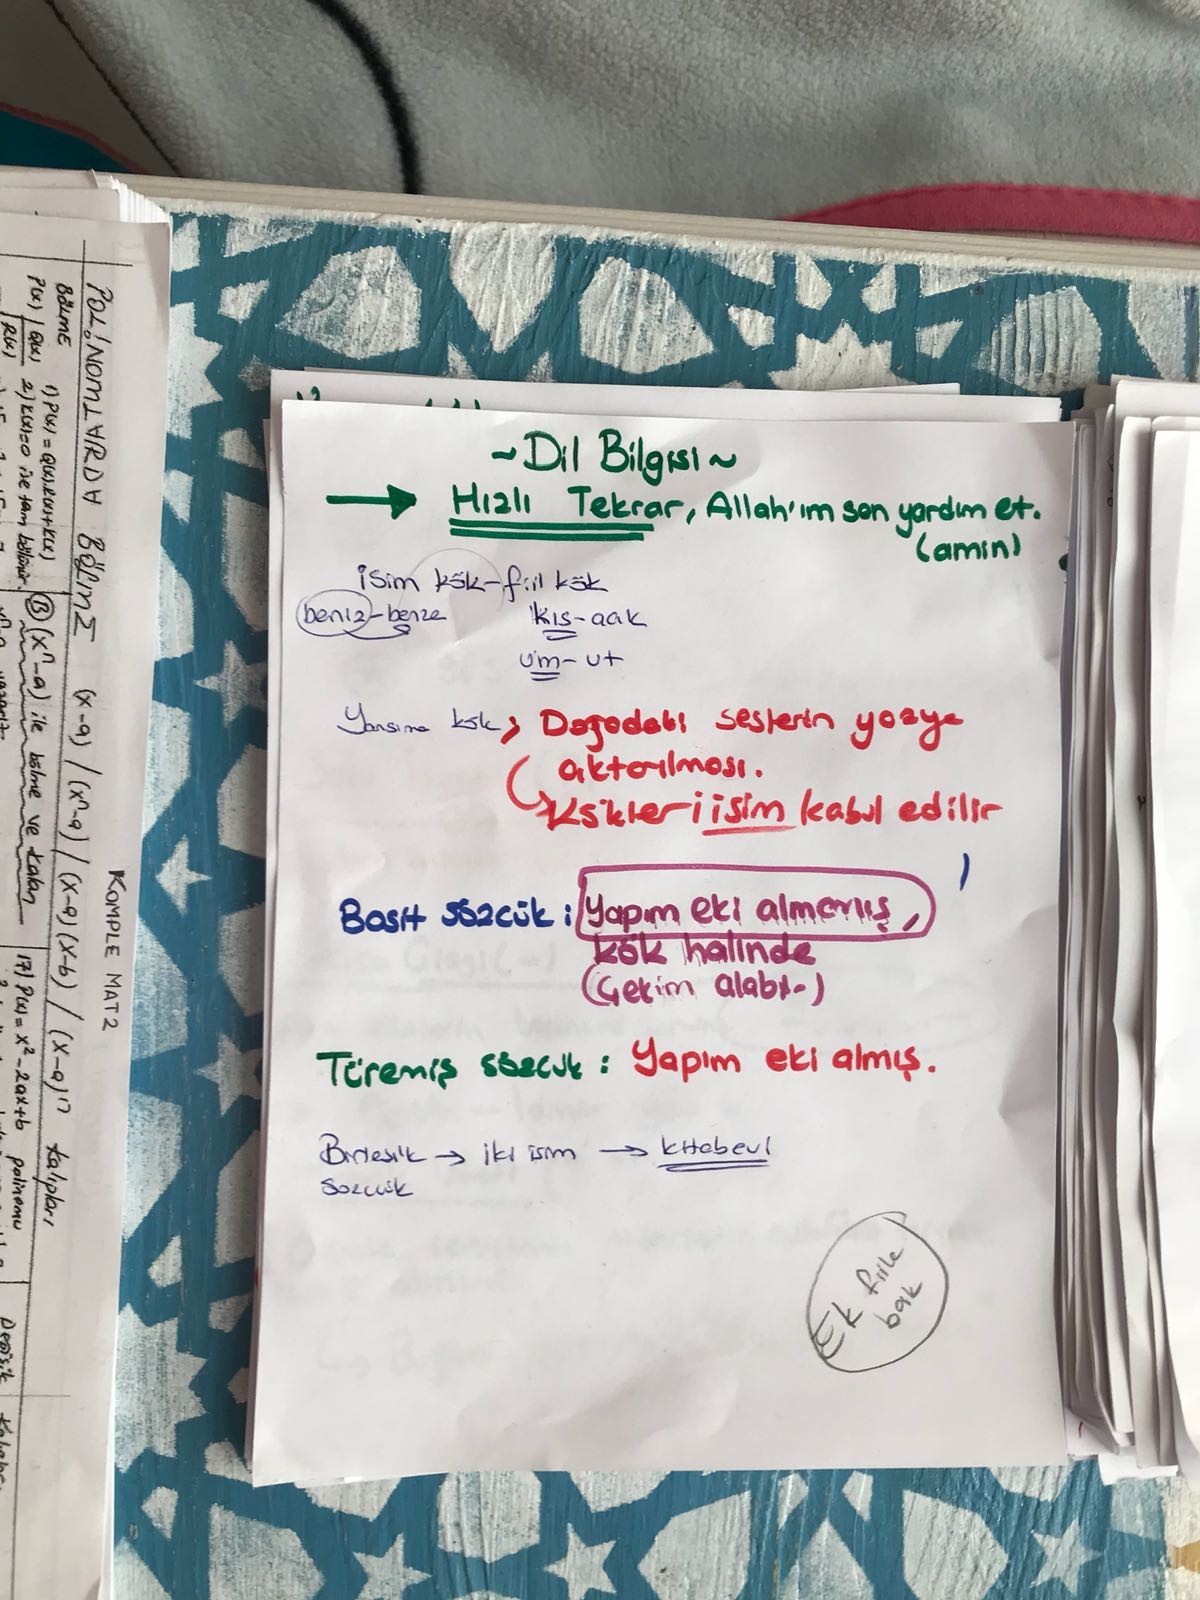 ~Dil Bilgisi~
→ Hızlı Tekrar, Allah'ım sen yardım et.
(amin)
isim kök-fiil kök
beniz-benze kıs-aak
um-ut
Yansıma kök → Doğadaki seslerin yazıya
aktarılması.
Kökleri isim kabul edilir
Basit sözcük : Yapım eki almamış,
kök halinde
(Çekim alabilir)
Türemiş sözcük : Yapım eki almış.
Birleşik → iki isim → kitabevi
sözcük
Ek fiile
bak
POLİNOMLARDA BÖLME (x-a) / (xⁿ-a) / (x-a)(x-b) / (x-a)ⁿ kalıpları
KOMPLE MAT2
BÖLME
1) P(x) = Q(x).B(x)+K(x)
P(x) | Q(x) 2) K(x)=0 ise tam bölünür.
B (xⁿ-a) ile bölme ve kalan
17) P(x) = x² - 2ax+b polinomu